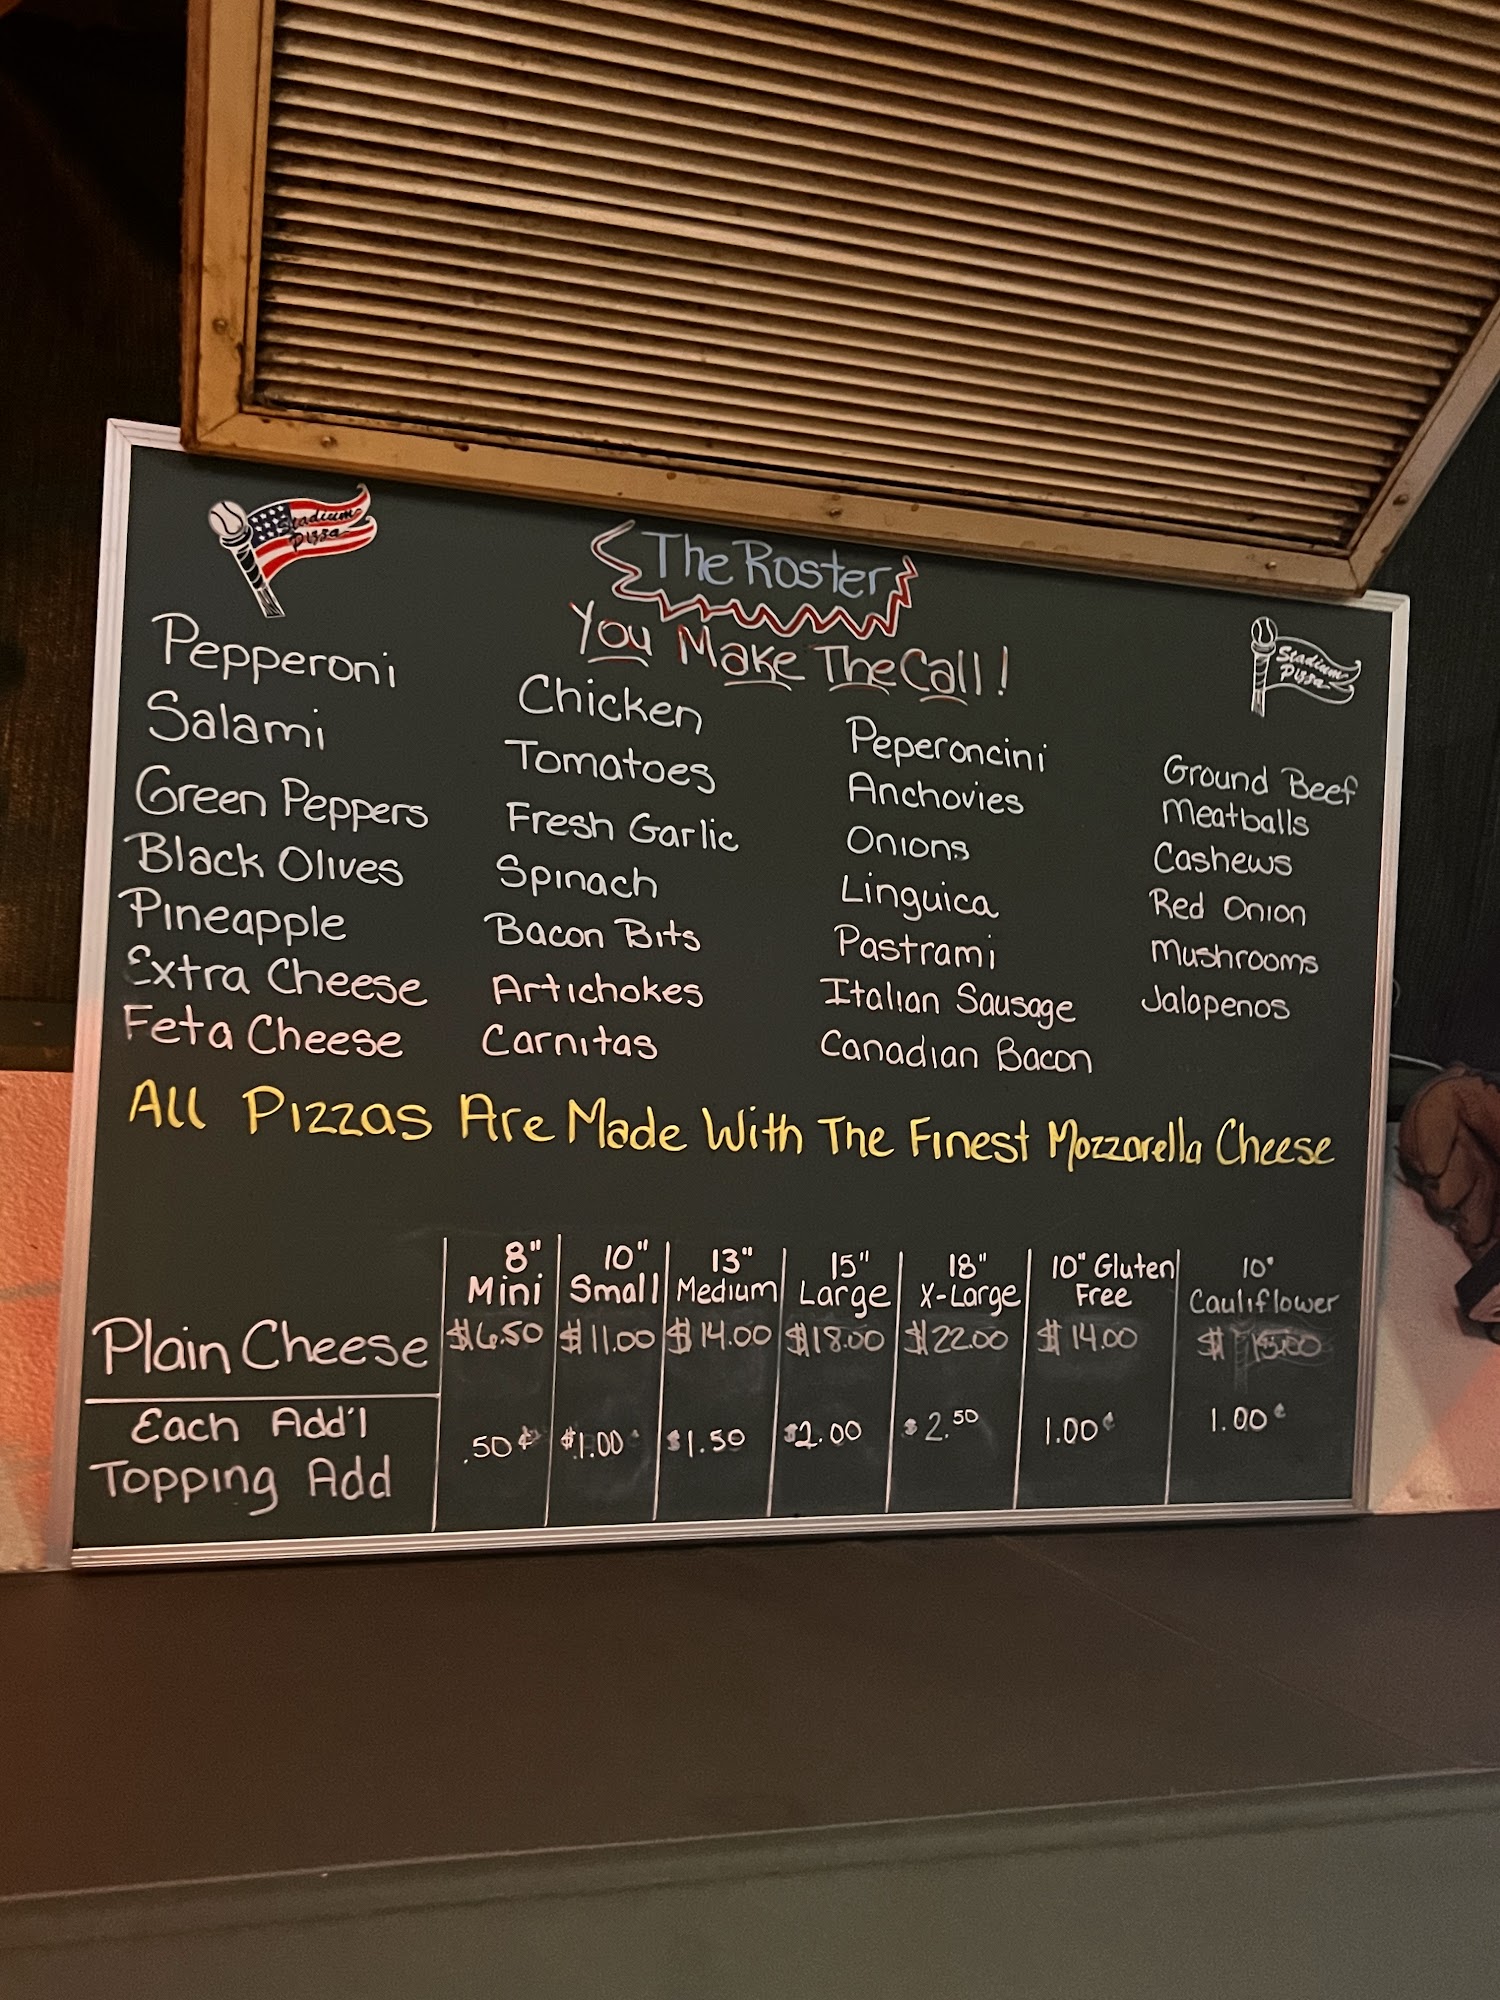 Stadium
Pizza
The Roster
You Make The Call!
Stadium
Pizza
Pepperoni
Salami
Green Peppers
Black Olives
Pineapple
Extra Cheese
Feta Cheese
Chicken
Tomatoes
Fresh Garlic
Spinach
Bacon Bits
Artichokes
Carnitas
Peperoncini
Anchovies
Onions
Linguica
Pastrami
Italian Sausage
Canadian Bacon
Ground Beef
Meatballs
Cashews
Red Onion
Mushrooms
Jalapenos
All Pizzas Are Made With The Finest Mozzarella Cheese
8" 10" 13" 15" 18" 10" Gluten 10"
Mini Small Medium Large X-Large Free Cauliflower
Plain Cheese $6.50 $11.00 $14.00 $18.00 $22.00 $14.00 $15.00
Each Add'l
Topping Add .50¢ $1.00 $1.50 $2.00 $2.50 1.00¢ 1.00¢